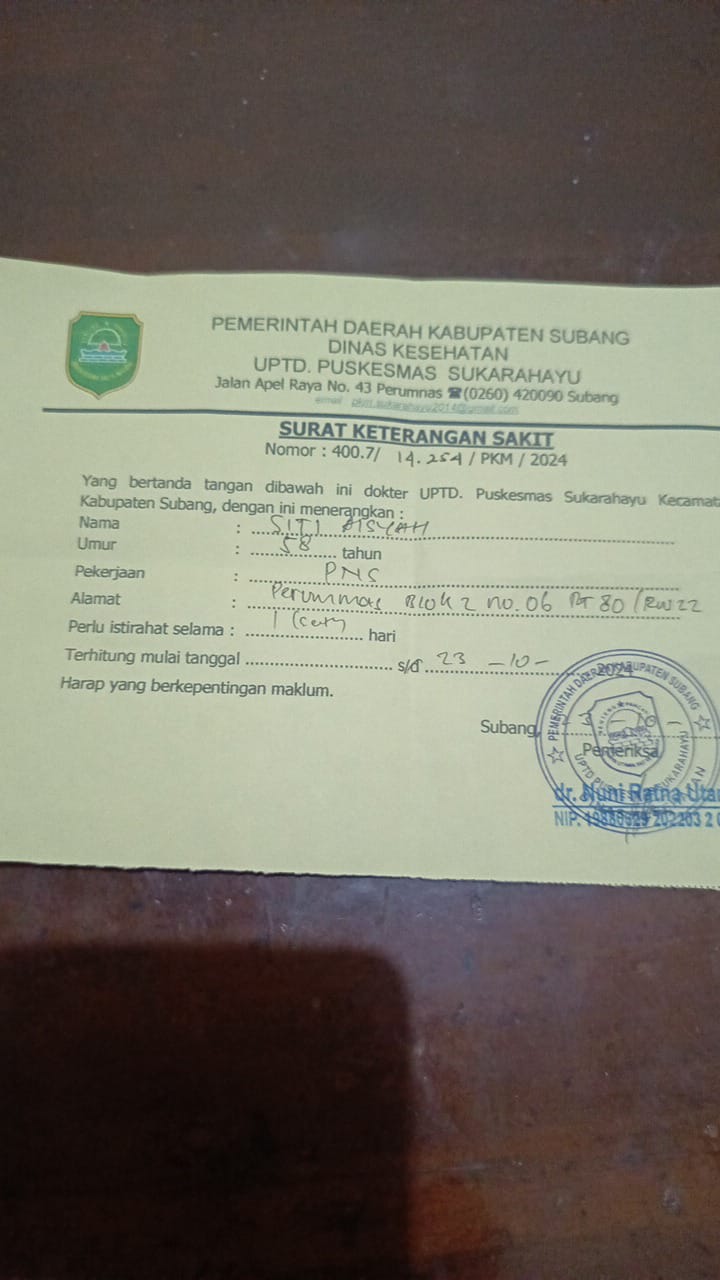 PEMERINTAH DAERAH KABUPATEN SUBANG
DINAS KESEHATAN
UPTD. PUSKESMAS SUKARAHAYU
Jalan Apel Raya No. 43 Perumnas ☎(0260) 420090 Subang
email : pkm.sukarahayu2014@gmail.com
SURAT KETERANGAN SAKIT
Nomor : 400.7/ 14.254 / PKM / 2024
Yang bertanda tangan dibawah ini dokter UPTD. Puskesmas Sukarahayu Kecamata
Kabupaten Subang, dengan ini menerangkan :
Nama : SITI AISYAH
Umur : 58 tahun
Pekerjaan : PNS
Alamat : Perumnas Blok 2 no. 06 RT 80 / RW 22
Perlu istirahat selama : 1 (satu) hari
Terhitung mulai tanggal ........ s/d 23 - 10 - 2024
Harap yang berkepentingan maklum.
Subang, 3 - 10 -
Pemeriksa
PEMERINTAH DAERAH KABUPATEN SUBANG
UPTD PUSKESMAS SUKARAHAYU
dr. Nuni Ratna Utar
NIP.